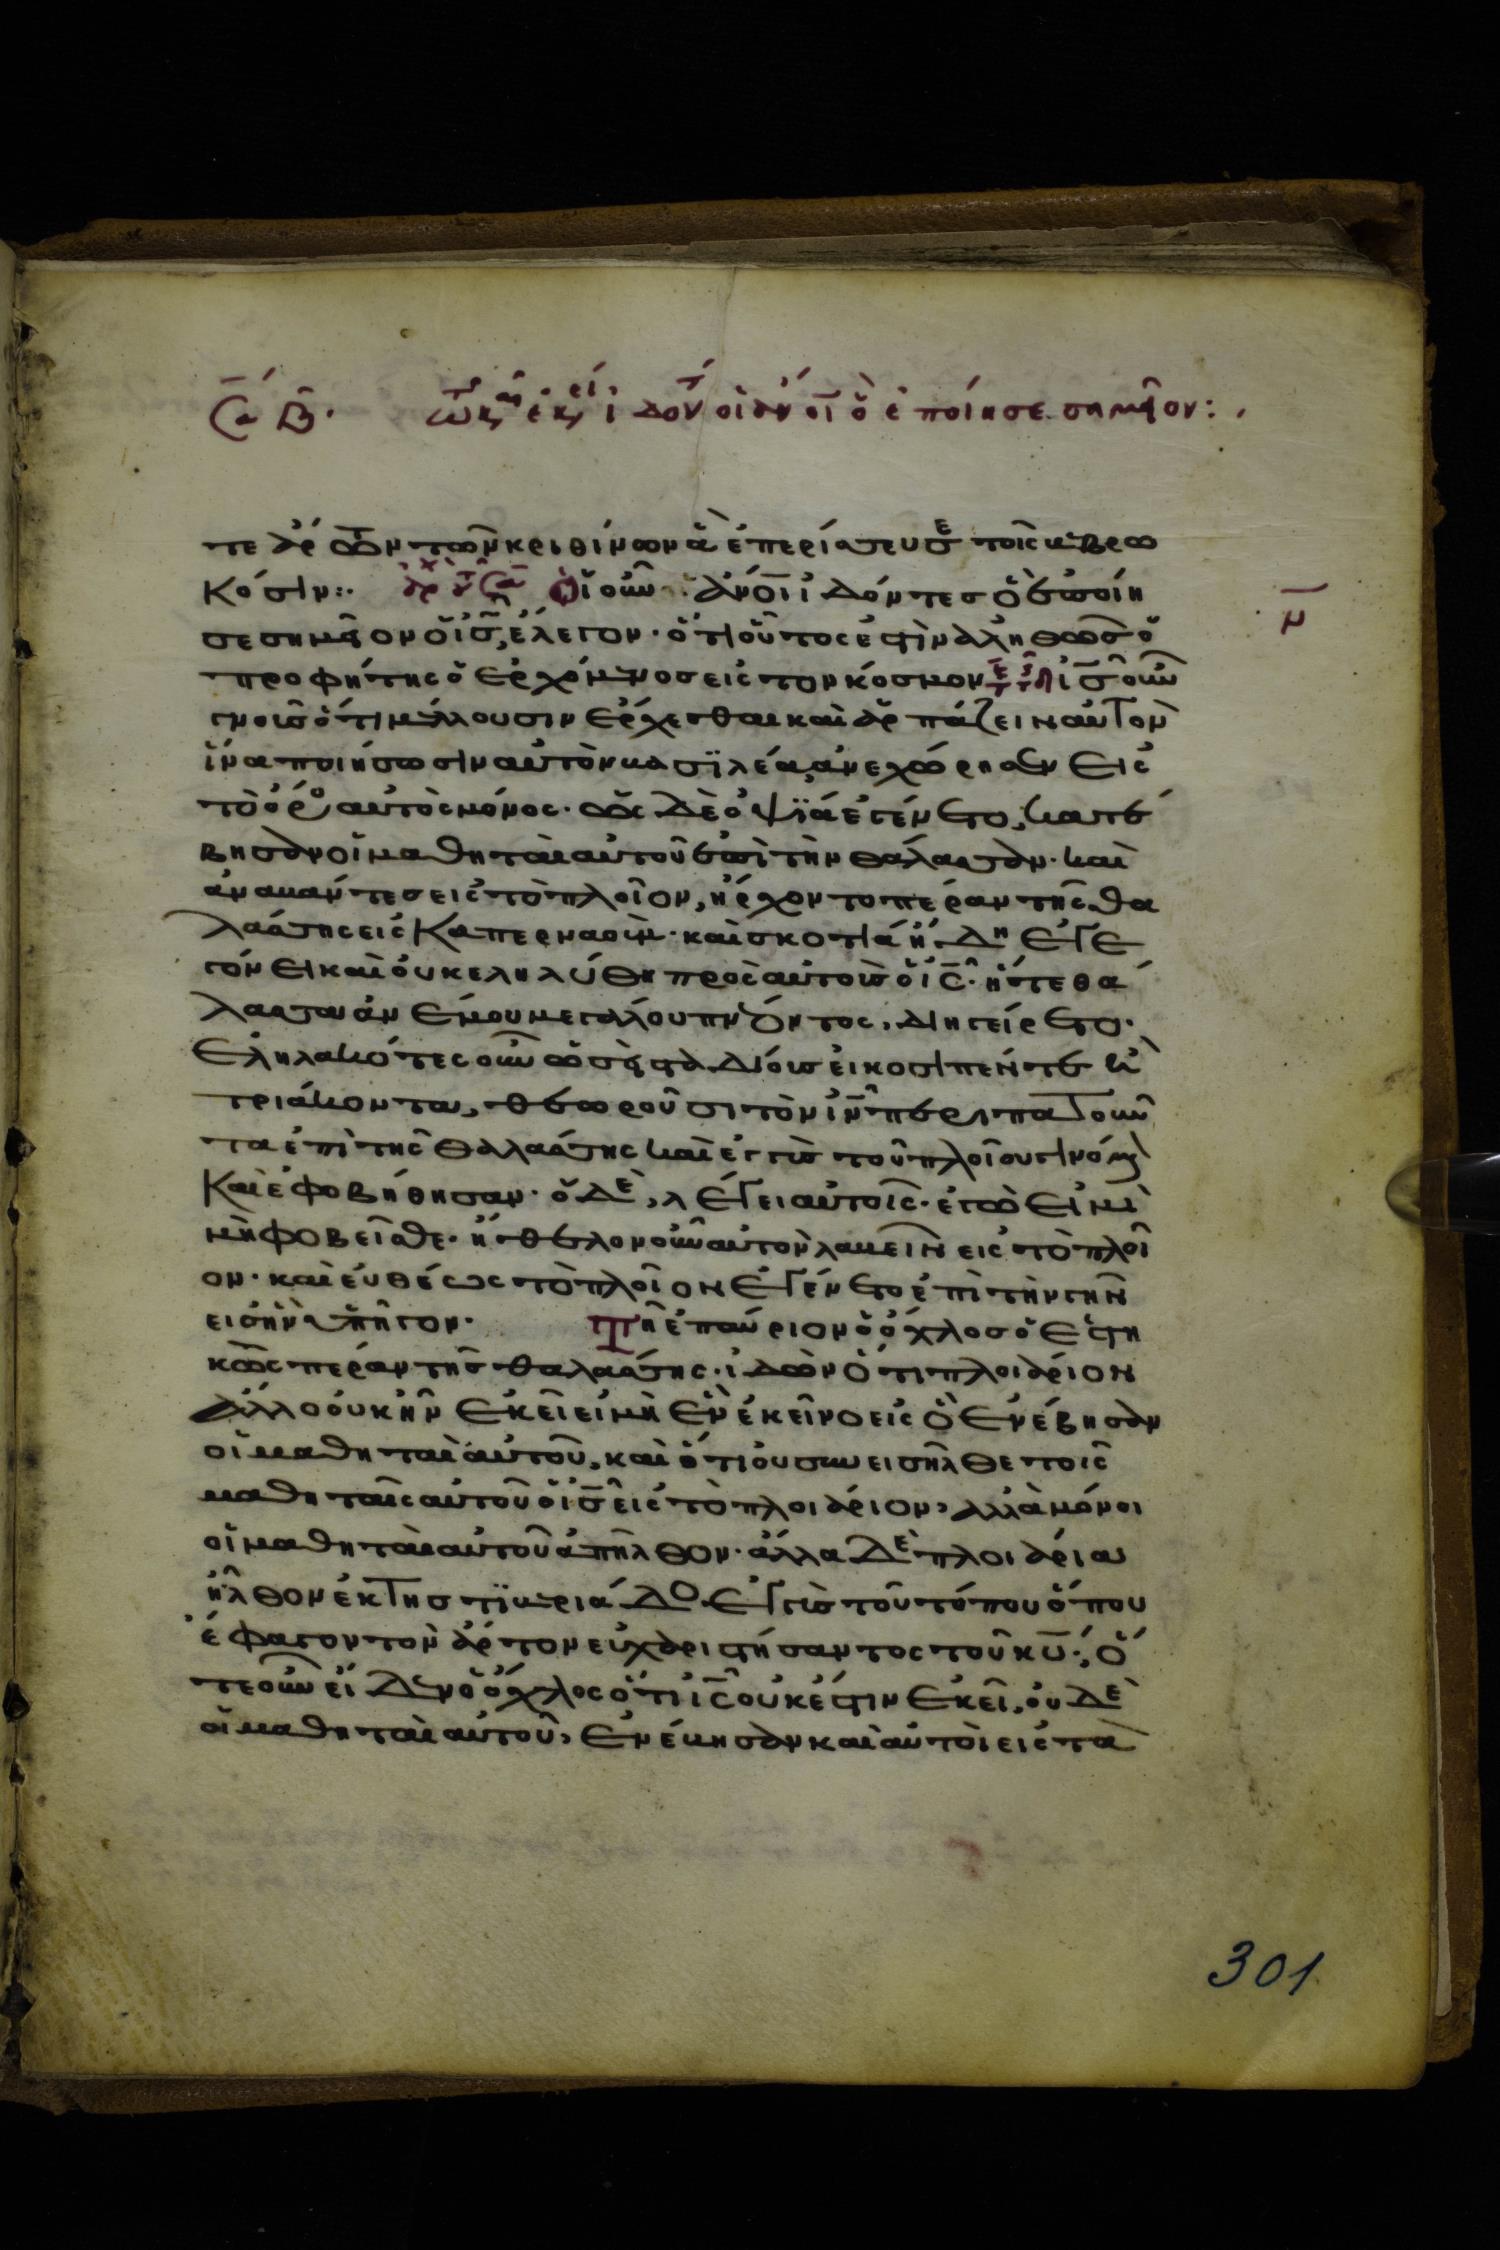 Σα β. τω κ αι εκ ει ιδοντ οι ανοι ὃ ἐποίησε σημεῖον:
τε ἄρτων τῶν κριθίνων ἃ ἐπερίσσευσε τοῖς βεβρω
κόσιν:. Οἱ οὖν ἄνοι ἰδόντες ὃ ἐποίη
σε σημεῖον ὁ ις, ἔλεγον· ὅτι οὗτος ἐστὶν ἀληθῶς ὁ
προφήτης ὁ ἐρχόμενος εἰς τὸν κόσμον ις οὖν
γνοὺς ὅτι μέλλουσιν ἔρχεσθαι καὶ ἁρπάζειν αὐτὸν
ἵνα ποιήσωσιν αὐτὸν βασιλέα, ἀνεχώρησεν εἰς
τὸ ὄρος αὐτὸς μόνος· ὡς δὲ ὀψία ἐγένετο, κατέ
βησαν οἱ μαθηταὶ αὐτοῦ ἐπὶ τὴν θάλασσαν· καὶ
ἀναβάντες εἰς τὸ πλοῖον, ἤρχοντο πέραν τῆς θα
λάσσης εἰς Καπερναούμ· καὶ σκοτία ἤδη ἐγε
γόνει καὶ οὐκ ἐληλύθει πρὸς αὐτοὺς ὁ ις· ἥ τε θά
λασσα ἀνέμου μεγάλου πνέοντος, διηγείρετο·
ἐληλακότες οὖν ὡς σταδίους εἰκοσιπέντε ἢ
τριάκοντα, θεωροῦσι τὸν ιν περιπατοῦν
τα ἐπὶ τῆς θαλάσσης καὶ ἐγγὺς τοῦ πλοίου γινόμενον
καὶ ἐφοβήθησαν· ὁ δὲ, λέγει αὐτοῖς· ἐγώ εἰμι
μὴ φοβεῖσθε· ἤθελον οὖν αὐτὸν λαβεῖν εἰς τὸ πλοῖ
ον· καὶ εὐθέως τὸ πλοῖον ἐγένετο ἐπὶ τὴν γῆν
εἰς ἣν ὑπῆγον· Τῆ ἐπαύριον ὁ ὄχλος ὁ ἑστη
κὼς πέραν τῆς θαλάσσης· ἰδὼν ὅτι πλοιάριον
ἄλλο οὐκ ἦν ἐκεῖ εἰ μὴ ἓν ἐκεῖνο εἰς ὃ ἐνέβησαν
οἱ μαθηταὶ αὐτοῦ, καὶ ὅτι οὐ συνεισῆλθε τοῖς
μαθηταῖς αὐτοῦ ὁ ις εἰς τὸ πλοιάριον, ἀλλὰ μόνοι
οἱ μαθηταὶ αὐτοῦ ἀπῆλθον· ἄλλα δὲ πλοιάρια
ἦλθον ἐκ τῆς τϊβεριάδος ἐγγὺς τοῦ τόπου ὅπου
ἔφαγον τὸν ἄρτον εὐχαριστήσαντος τοῦ κυ·, ὅ
τε οὖν εἶδεν ὁ ὄχλος ὅτι ις οὐκ ἔστιν ἐκεῖ, οὐδὲ
οἱ μαθηταὶ αὐτοῦ, ἐνέβησαν καὶ αὐτοὶ εἰς τὰ
μ
301